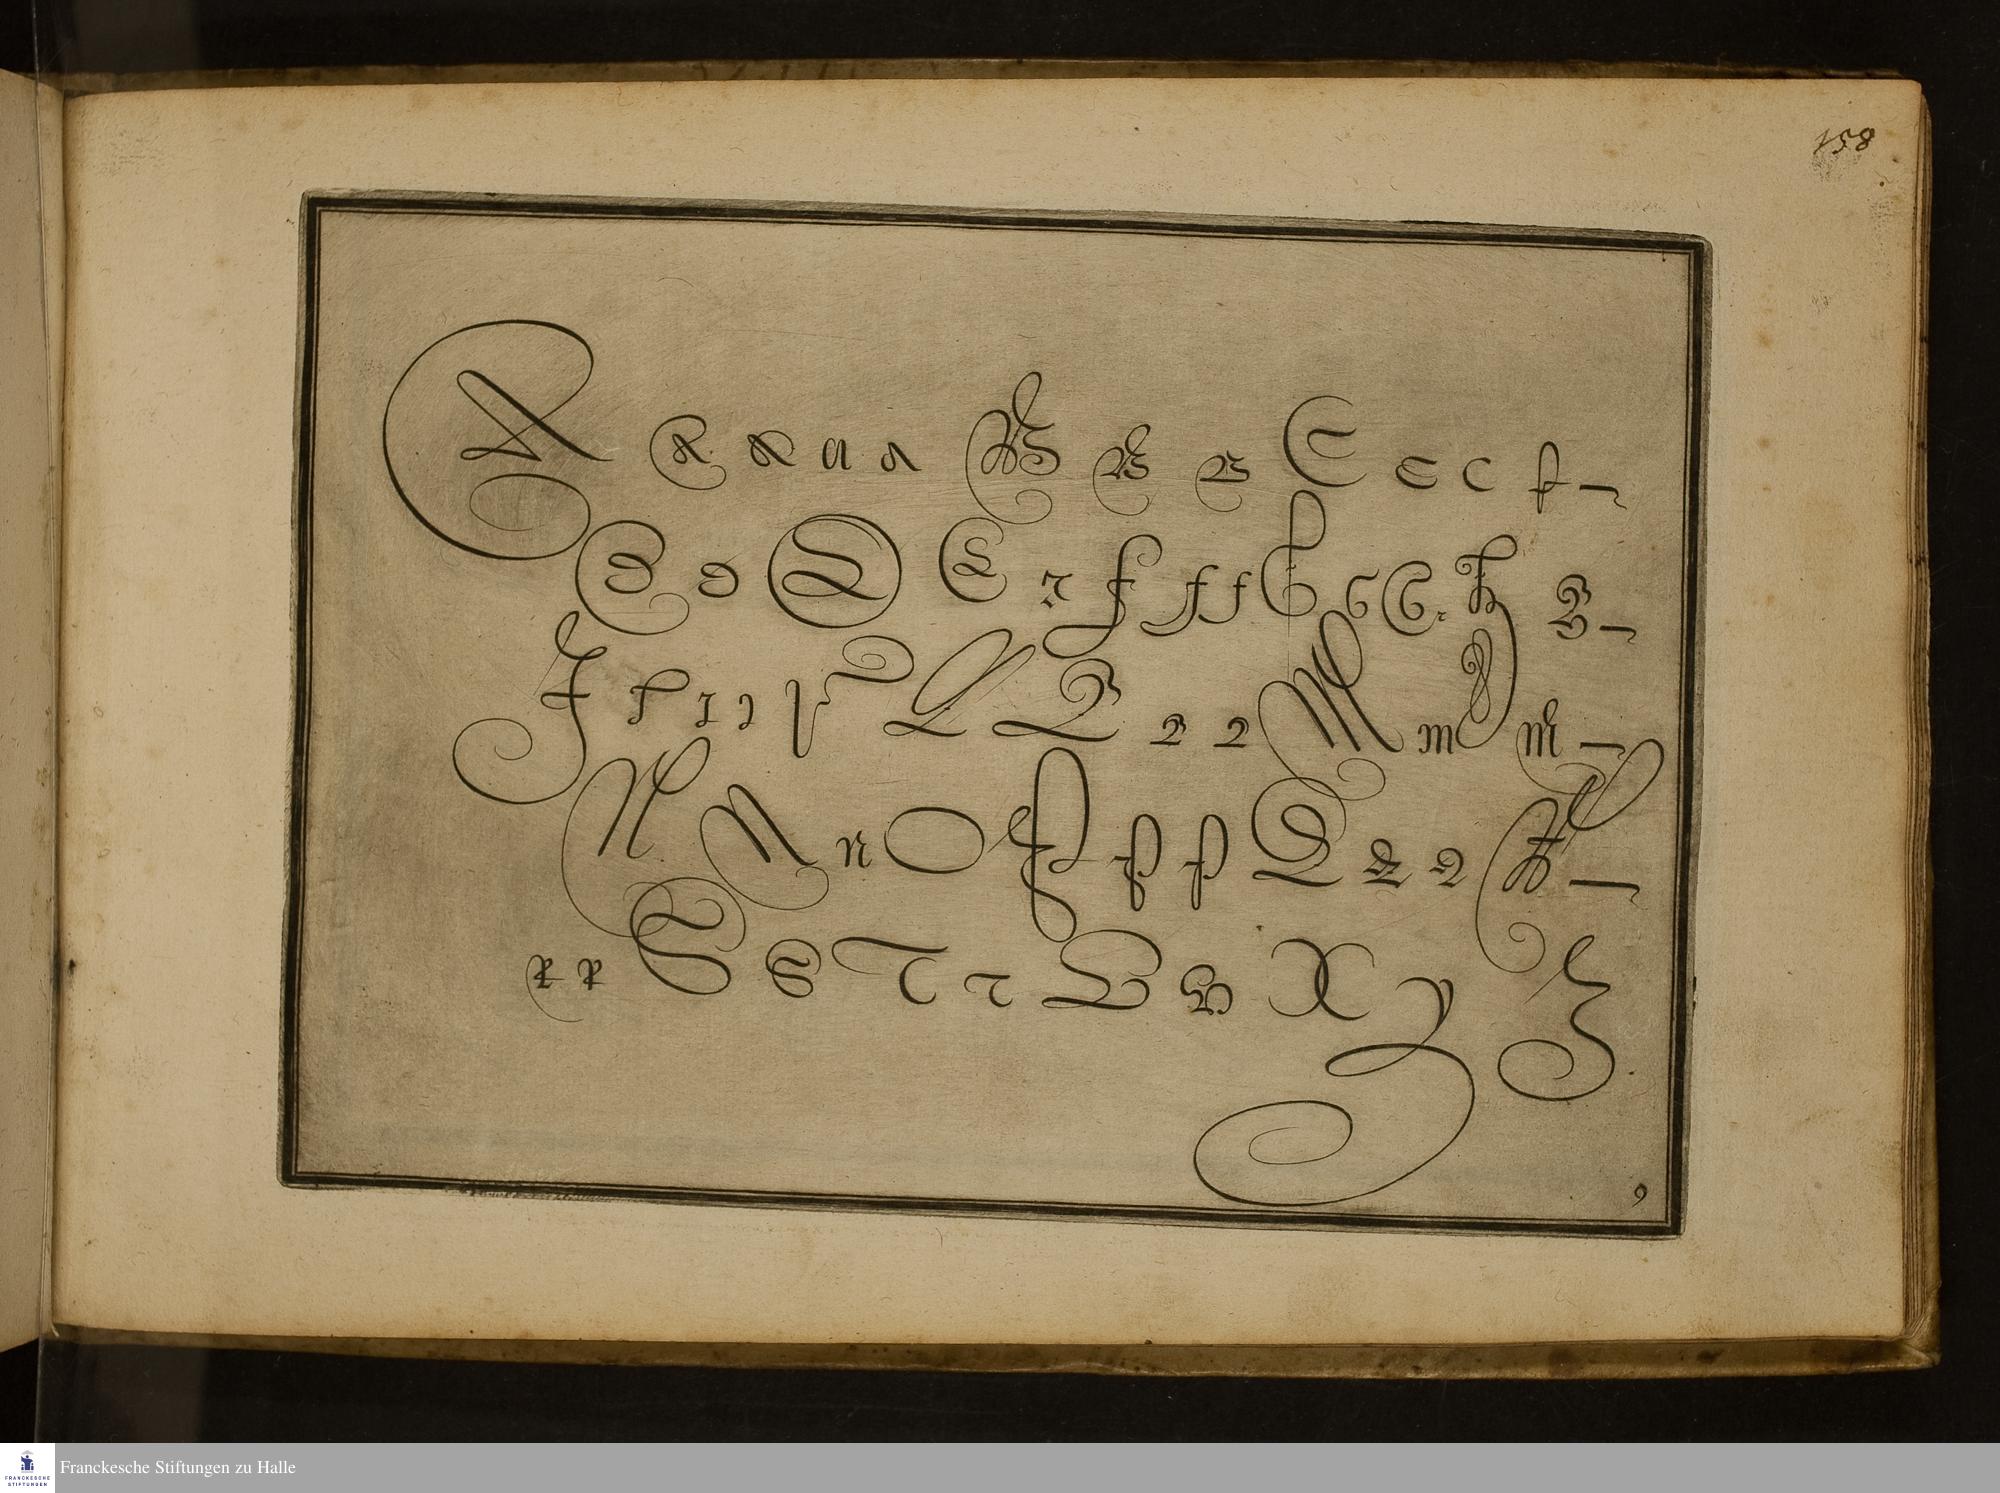 158
A A A a a B B B C C C C
D D D E E F F F G G G H H
I I I I K L L L L M M M
N N N O P P P Q Q Q R
R R S S T T V W X Y Z
9
Franckesche Stiftungen zu Halle
FRANCKESCHE
STIFTUNGEN